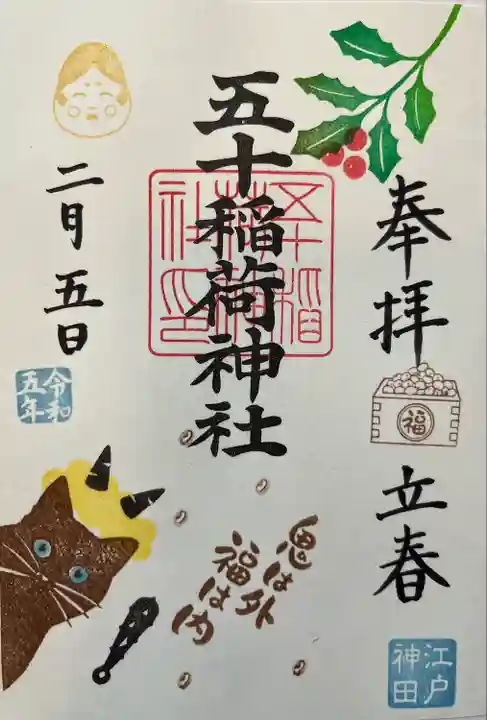 奉拝
福
立春
江戸
神田
五十稲荷神社
五十稲
荷神
社印
鬼は外
福は内
二月五日
令和
五年